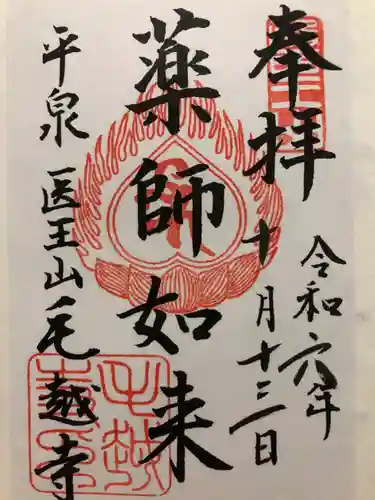 奉拝
令和六年
十月十三日
薬師如来
平泉 医王山毛越寺